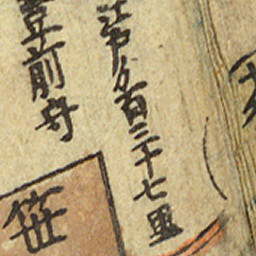 江戸ゟ百三十七里
豊前守
笹